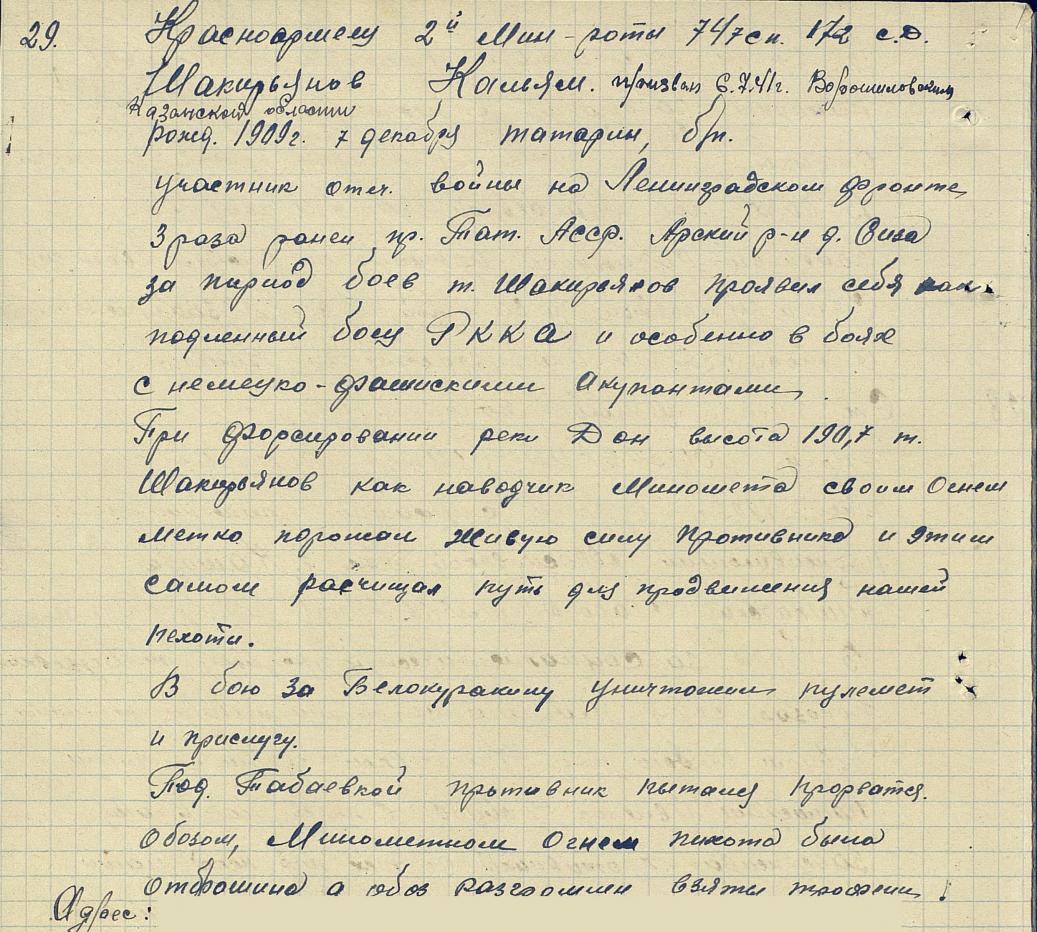 29. Красноармеец 2й Мин-роты 747 сп. 172 с.д.
Шакирьянов Кальям. призван 6.7.41г. Ворошиловским
Казанской области
рожд. 1909г. 7 декабря татарин, б/п.
участник отеч. войны на Ленинградском фронте
3 раза ранен пр. Тат. Асср. Арский р-н д.
за период боев т. Шакирьянов проявил себя как
подленный боец РККА и особенно в боях
с немецко-фашискими акупантами
При форсировании реки Дон высота 190,7 т.
Шакирьянов как наводчик Миномета своим Огнем
метко поражал живую силу противника и этим
самом расчищал путь для продвижения нашей
пехоты.
В бою за Белокуракину уничтожил пулемет
и прислугу.
Под. Табаевкой противник пытался прорватся.
Обозом, Минометном Огнем пихота была
отброшина а обоз разгромлен взяты трофеи!
Адрес: